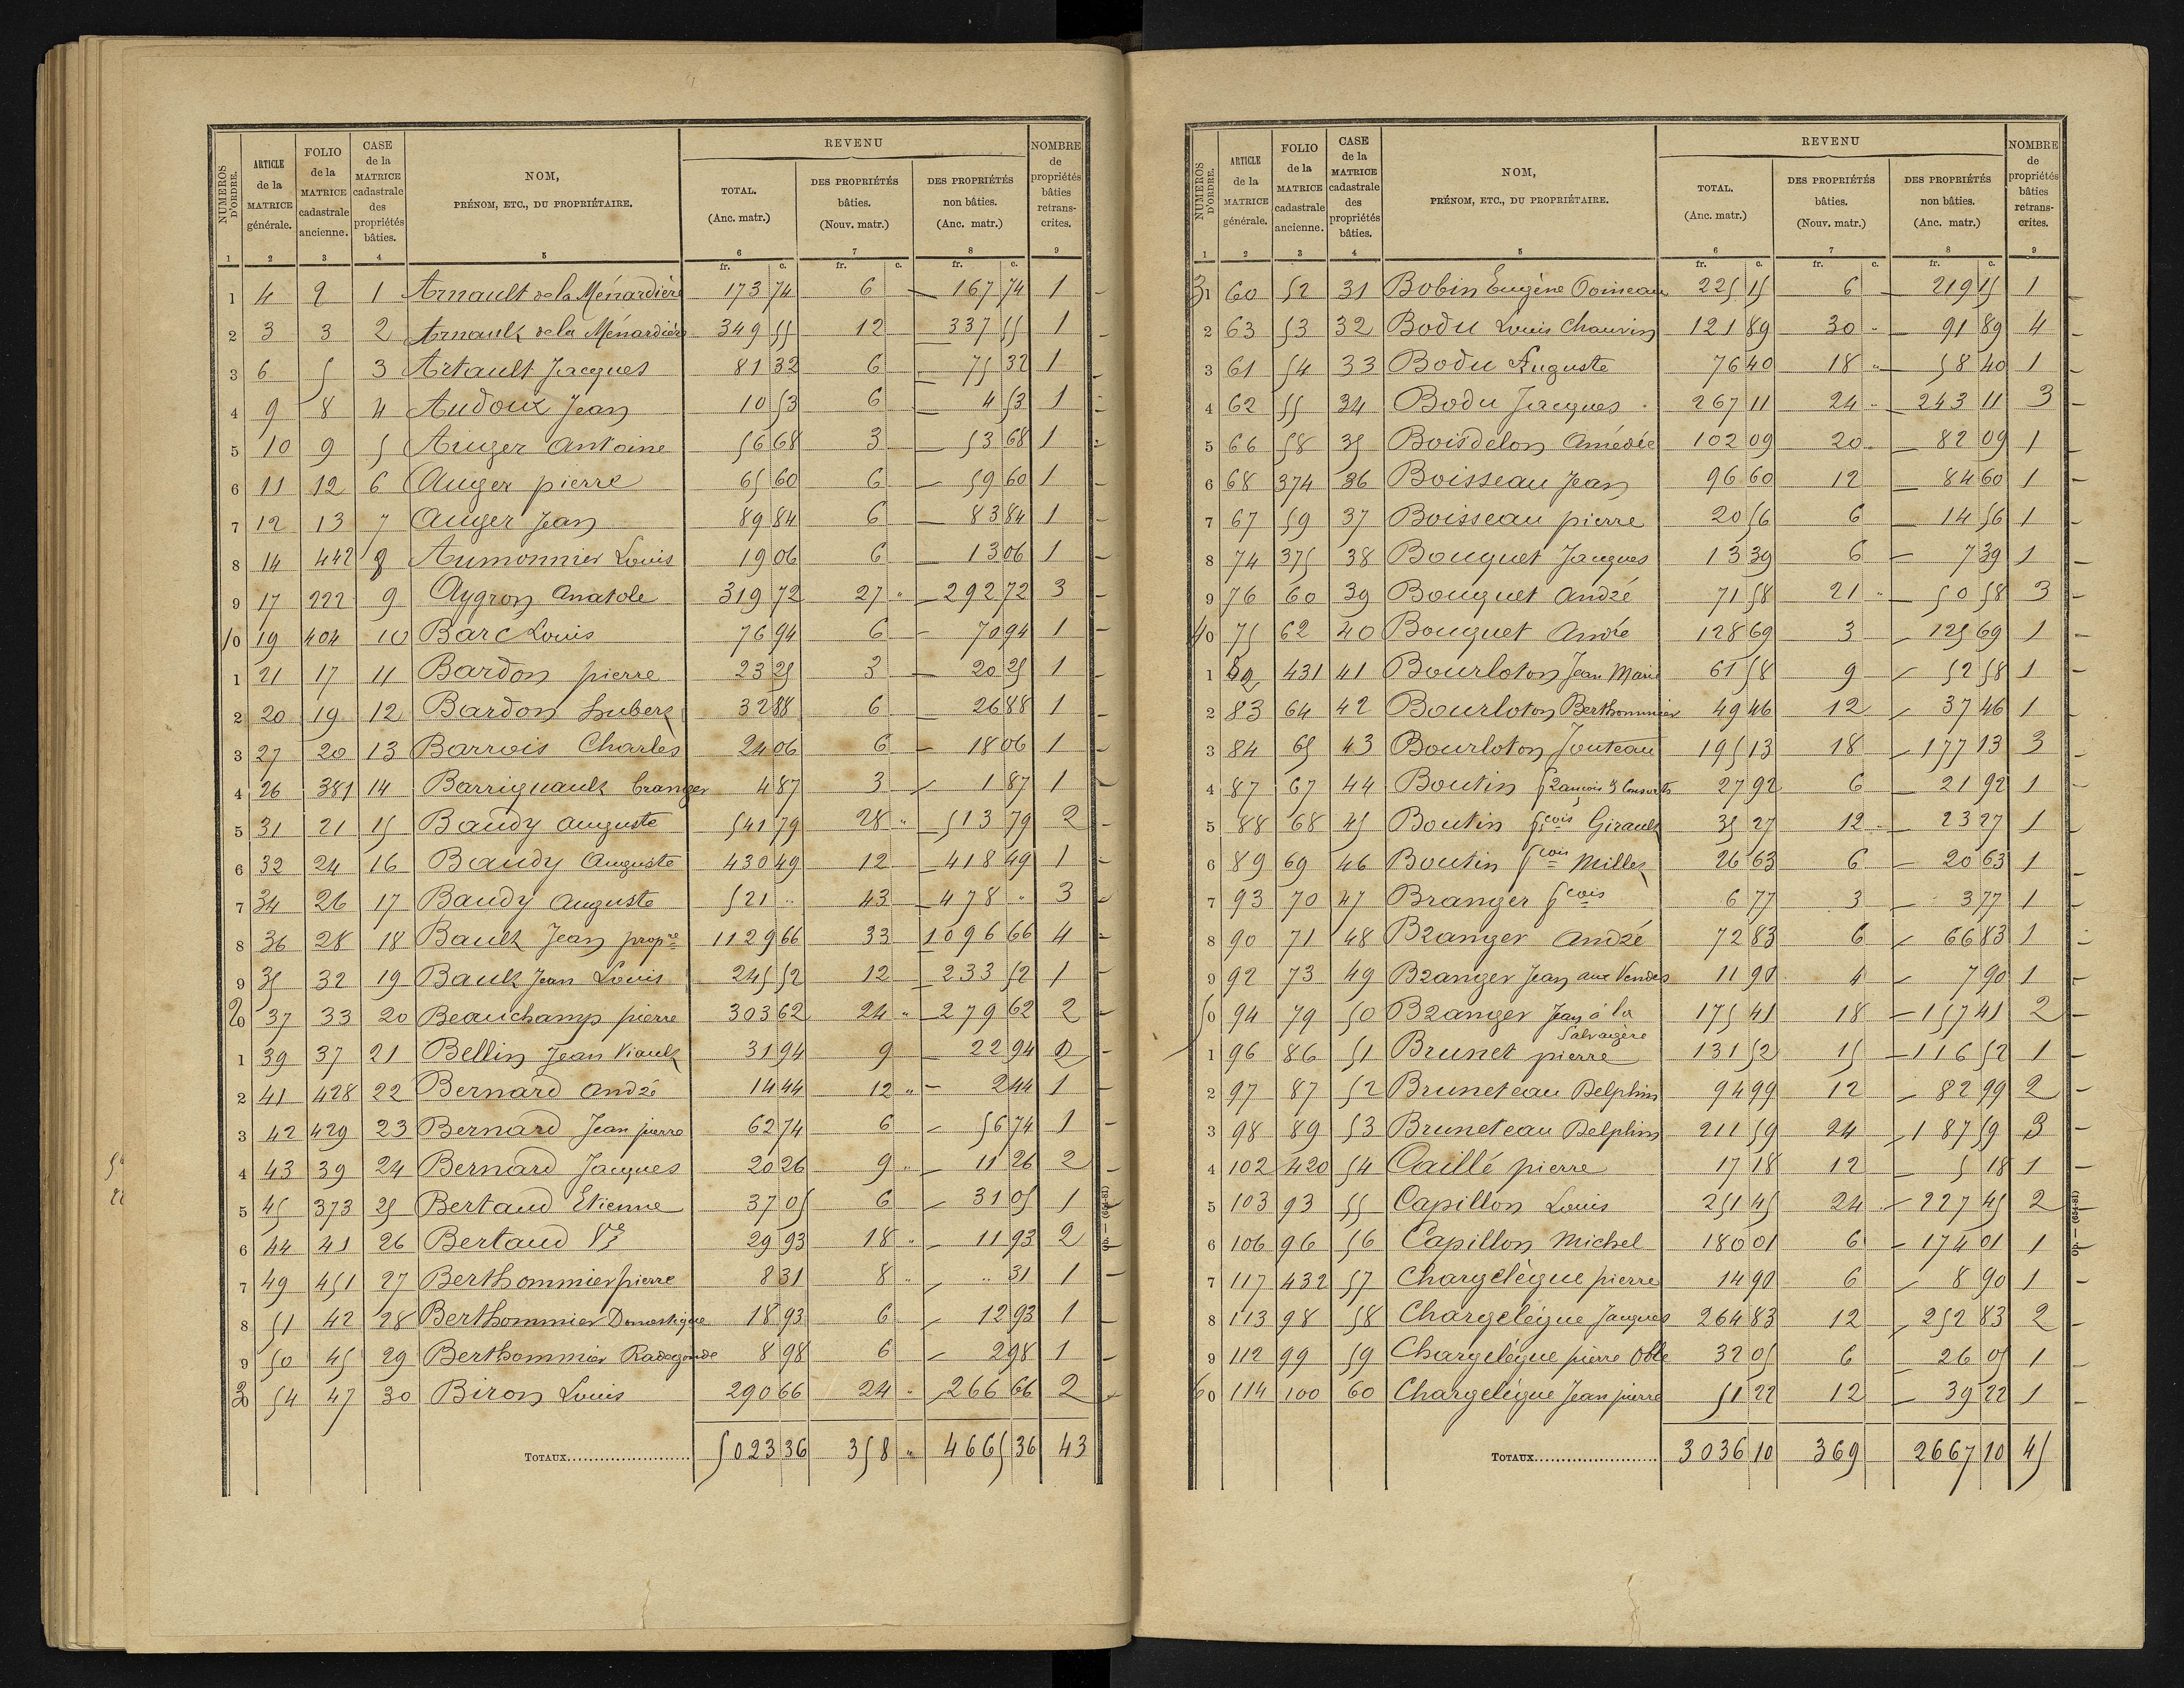 REVENU
NUMÉROS D'ORDRE. ARTICLE de la MATRICE générale. FOLIO de la MATRICE cadastrale ancienne. CASE de la MATRICE cadastrale des propriétés bâties. NOM, PRÉNOM, ETC., DU PROPRIÉTAIRE. TOTAL. (Anc. matr.) DES PROPRIÉTÉS bâties. (Nouv. matr.) DES PROPRIÉTÉS non bâties. (Anc. matr.) NOMBRE de propriétés bâties retrans-crites.
1 2 3 4 5 6 7 8 9
fr. c. fr. c. fr. c.
1 4 2 1 Arnault de la Ménardière 173 74 6 — 167 74 1 -
2 3 3 2 Arnault de la Ménardière 349 55 12 — 337 55 1 -
3 6 5 3 Artault Jacques 81 32 6 — 75 32 1 -
4 9 8 4 Audoux Jean 10 53 6 — 4 53 1 -
5 10 9 5 Auger Antoine 56 68 3 — 53 68 1 -
6 11 12 6 Auger pierre 65 60 6 — 59 60 1 -
7 12 13 7 Auger Jean 89 84 6 — 83 84 1 -
8 14 442 8 Aumonnier Louis 19 06 6 — 13 06 1 -
9 17 222 9 Aygron Anatole 319 72 27 " — 292 72 3 -
10 19 404 10 Barc Louis 76 94 6 — 70 94 1 -
1 21 17 11 Bardon pierre 23 25 3 — 20 25 1 -
2 20 19 12 Bardon hubert 32 88 6 — 26 88 1 -
3 27 20 13 Barrois Charles 24 06 6 — 18 06 1 -
4 26 381 14 Barrignault Granger 4 87 3 — 1 87 1 -
5 31 21 15 Baudy auguste 541 79 28 " — 513 79 2 -
6 32 24 16 Baudy Auguste 430 49 12 — 418 49 1 -
7 34 26 17 Baudy auguste 521 " 43 — 478 " 3 -
8 36 28 18 Bault Jean propre 1129 66 33 1096 66 4 -
9 35 32 19 Bault Jean Louis 245 52 12 — 233 52 1 -
20 37 33 20 Beauchamp pierre 303 62 24 " — 279 62 2 -
1 39 37 21 Bellin Jean Viault 31 94 9 — 22 94 2 -
2 41 428 22 Bernard André 14 44 12 " — 2 44 1 -
3 42 429 23 Bernard Jean pierre 62 74 6 — 56 74 1 -
4 43 39 24 Bernard Jacques 20 26 9 " — 11 26 2 -
5 45 373 25 Bertaud Etienne 37 05 6 — 31 05 1 -
6 44 41 26 Bertaud Ve 29 93 18 " — 11 93 2 -
7 49 451 27 Berthommier pierre 8 31 8 " — " 31 1 -
8 51 42 28 Berthommier Domestique 18 93 6 — 12 93 1 -
9 50 45 29 Berthommier Radegonde 8 98 6 — 2 98 1 -
30 54 47 30 Biron Louis 290 66 24 " — 266 66 2 -
TOTAUX 5023 36 358 " 4665 36 43
Op. — (654-81)
REVENU
NUMÉROS D'ORDRE. ARTICLE de la MATRICE générale. FOLIO de la MATRICE cadastrale ancienne. CASE de la MATRICE cadastrale des propriétés bâties. NOM, PRÉNOM, ETC., DU PROPRIÉTAIRE. TOTAL. (Anc. matr.) DES PROPRIÉTÉS bâties. (Nouv. matr.) DES PROPRIÉTÉS non bâties. (Anc. matr.) NOMBRE de propriétés bâties retrans-crites.
1 2 3 4 5 6 7 8 9
fr. c. fr. c. fr. c.
31 60 52 31 Bobin Eugène Poineau 225 15 6 — 219 15 1 -
2 63 53 32 Bodu Louis Chauvin 121 89 30 " — 91 89 4 -
3 61 54 33 Bodu Auguste 76 40 18 " — 58 40 1 -
4 62 55 34 Bodu Jacques 267 11 24 " — 243 11 3 -
5 66 58 35 Boisdelon Amédée 102 09 20 " — 82 09 1 -
6 68 374 36 Boisseau Jean 96 60 12 — 84 60 1 -
7 67 59 37 Boisseau pierre 20 56 6 — 14 56 1 -
8 74 375 38 Bouquet Jacques 13 39 6 — 7 39 1 -
9 76 60 39 Bouquet André 71 58 21 " — 50 58 3 -
40 75 62 40 Bouquet André 128 69 3 — 125 69 1 -
1 82 431 41 Bourloton Jean Marie 61 58 9 — 52 58 1 -
2 83 64 42 Bourloton Berthommier 49 46 12 — 37 46 1 -
3 84 65 43 Bourloton Jouteau 195 13 18 — 177 13 3 -
4 87 67 44 Boutin François & Consorts 27 92 6 — 21 92 1 -
5 88 68 45 Boutin fcois Girault 35 27 12 — 23 27 1 -
6 89 69 46 Boutin fcois Millet 26 63 6 — 20 63 1 -
7 93 70 47 Branger fcois 6 77 3 — 3 77 1 -
8 90 71 48 Branger André 72 83 6 — 66 83 1 -
9 92 73 49 Branger Jean aux Vendes 11 90 4 — 7 90 1 -
50 94 79 50 Branger Jean à la Salvagère 175 41 18 — 157 41 2 -
1 96 86 51 Brunet pierre 131 52 15 — 116 52 1 -
2 97 87 52 Bruneteau Delphin 94 99 12 — 82 99 2 -
3 98 89 53 Bruneteau Delphin 211 59 24 — 187 59 3 -
4 102 420 54 Caillé pierre 17 18 12 — 5 18 1 -
5 103 93 55 Capillon Louis 251 45 24 — 227 45 2 -
6 106 96 56 Capillon Michel 180 01 6 — 174 01 1 -
7 117 432 57 Chargelègue pierre 14 90 6 — 8 90 1 -
8 113 98 58 Chargelègue Jacques 264 83 12 — 252 83 2 -
9 112 99 59 Chargelègue pierre Oble 32 05 6 — 26 05 1 -
60 114 100 60 Chargelègue Jean pierre 51 22 12 — 39 22 1 -
TOTAUX 3036 10 369 2667 10 45
Op. — (654-81)